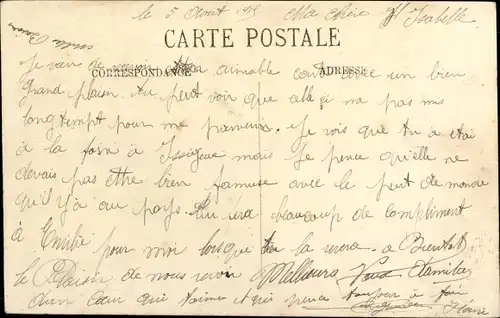 le 5 Août Ma Chère Isabelle
mille Baisers
CARTE POSTALE
CORRESPONDANCE ADRESSE
Je vien de aimable avec un bien
grand plaisir. tu peut voir que elle a na pas mis
longtempt pour me parvenir. Je vois que tu a etai
à la foire à mais Je pence qu'elle ne
devais pas ettre bien fameuse avec le peut de monde
qu'il y'à au pays. tu fera beaucoup de compliment
à Emilie pour moi lorsque tu la verra. à Bientot
le Plaisir de nous revoir Meilleurs
d'un Cœur qui t'aime et qui pence toujour à toi